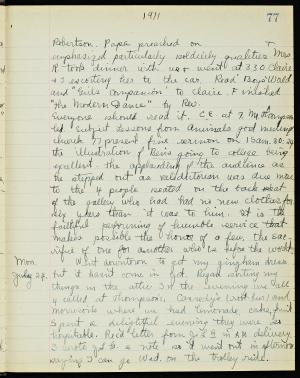 1911
77
Robertson. Papa preached on
emphasized particularly soldierly qualities. Mrs.
R. took dinner with us & went at 3.30. Claire
& I escorting her to the car. Read "Boys' World"
and "Girls' Companion" to Claire. Finished
"The Modern Dance" by Rev.
Everyone should read it. C.E. at 7.
led. Subject Lessons from Animals. good meeting
church 7 present fine sermon on 1 Sam. 30:24
the illustration of going to college being
excellent. The applauding of the audience as
he stepped out as valedictorian was due more
to the 4 people seated on the back seat
of the gallery who had had no new clothes for
six years than it was to him. It is the
faithful performing of humble service that
makes possible the honor of a few, the sac-
rifice of one for another who up the work.
Mon.
July 24.
Went downtown to get my gingham dress
but it hasn't come in yet. Began sorting my
things in the attic. In the evening we all
called at Thompson's, Connely's (not in) and
where we had lemonade, cake, fruit
Spent a delightful evening they were so
hospitable. Rec'd letter from in A.M. delivery
I wrote a note as I went out in afternoon
saying I can go Wed. on the trolley ride.